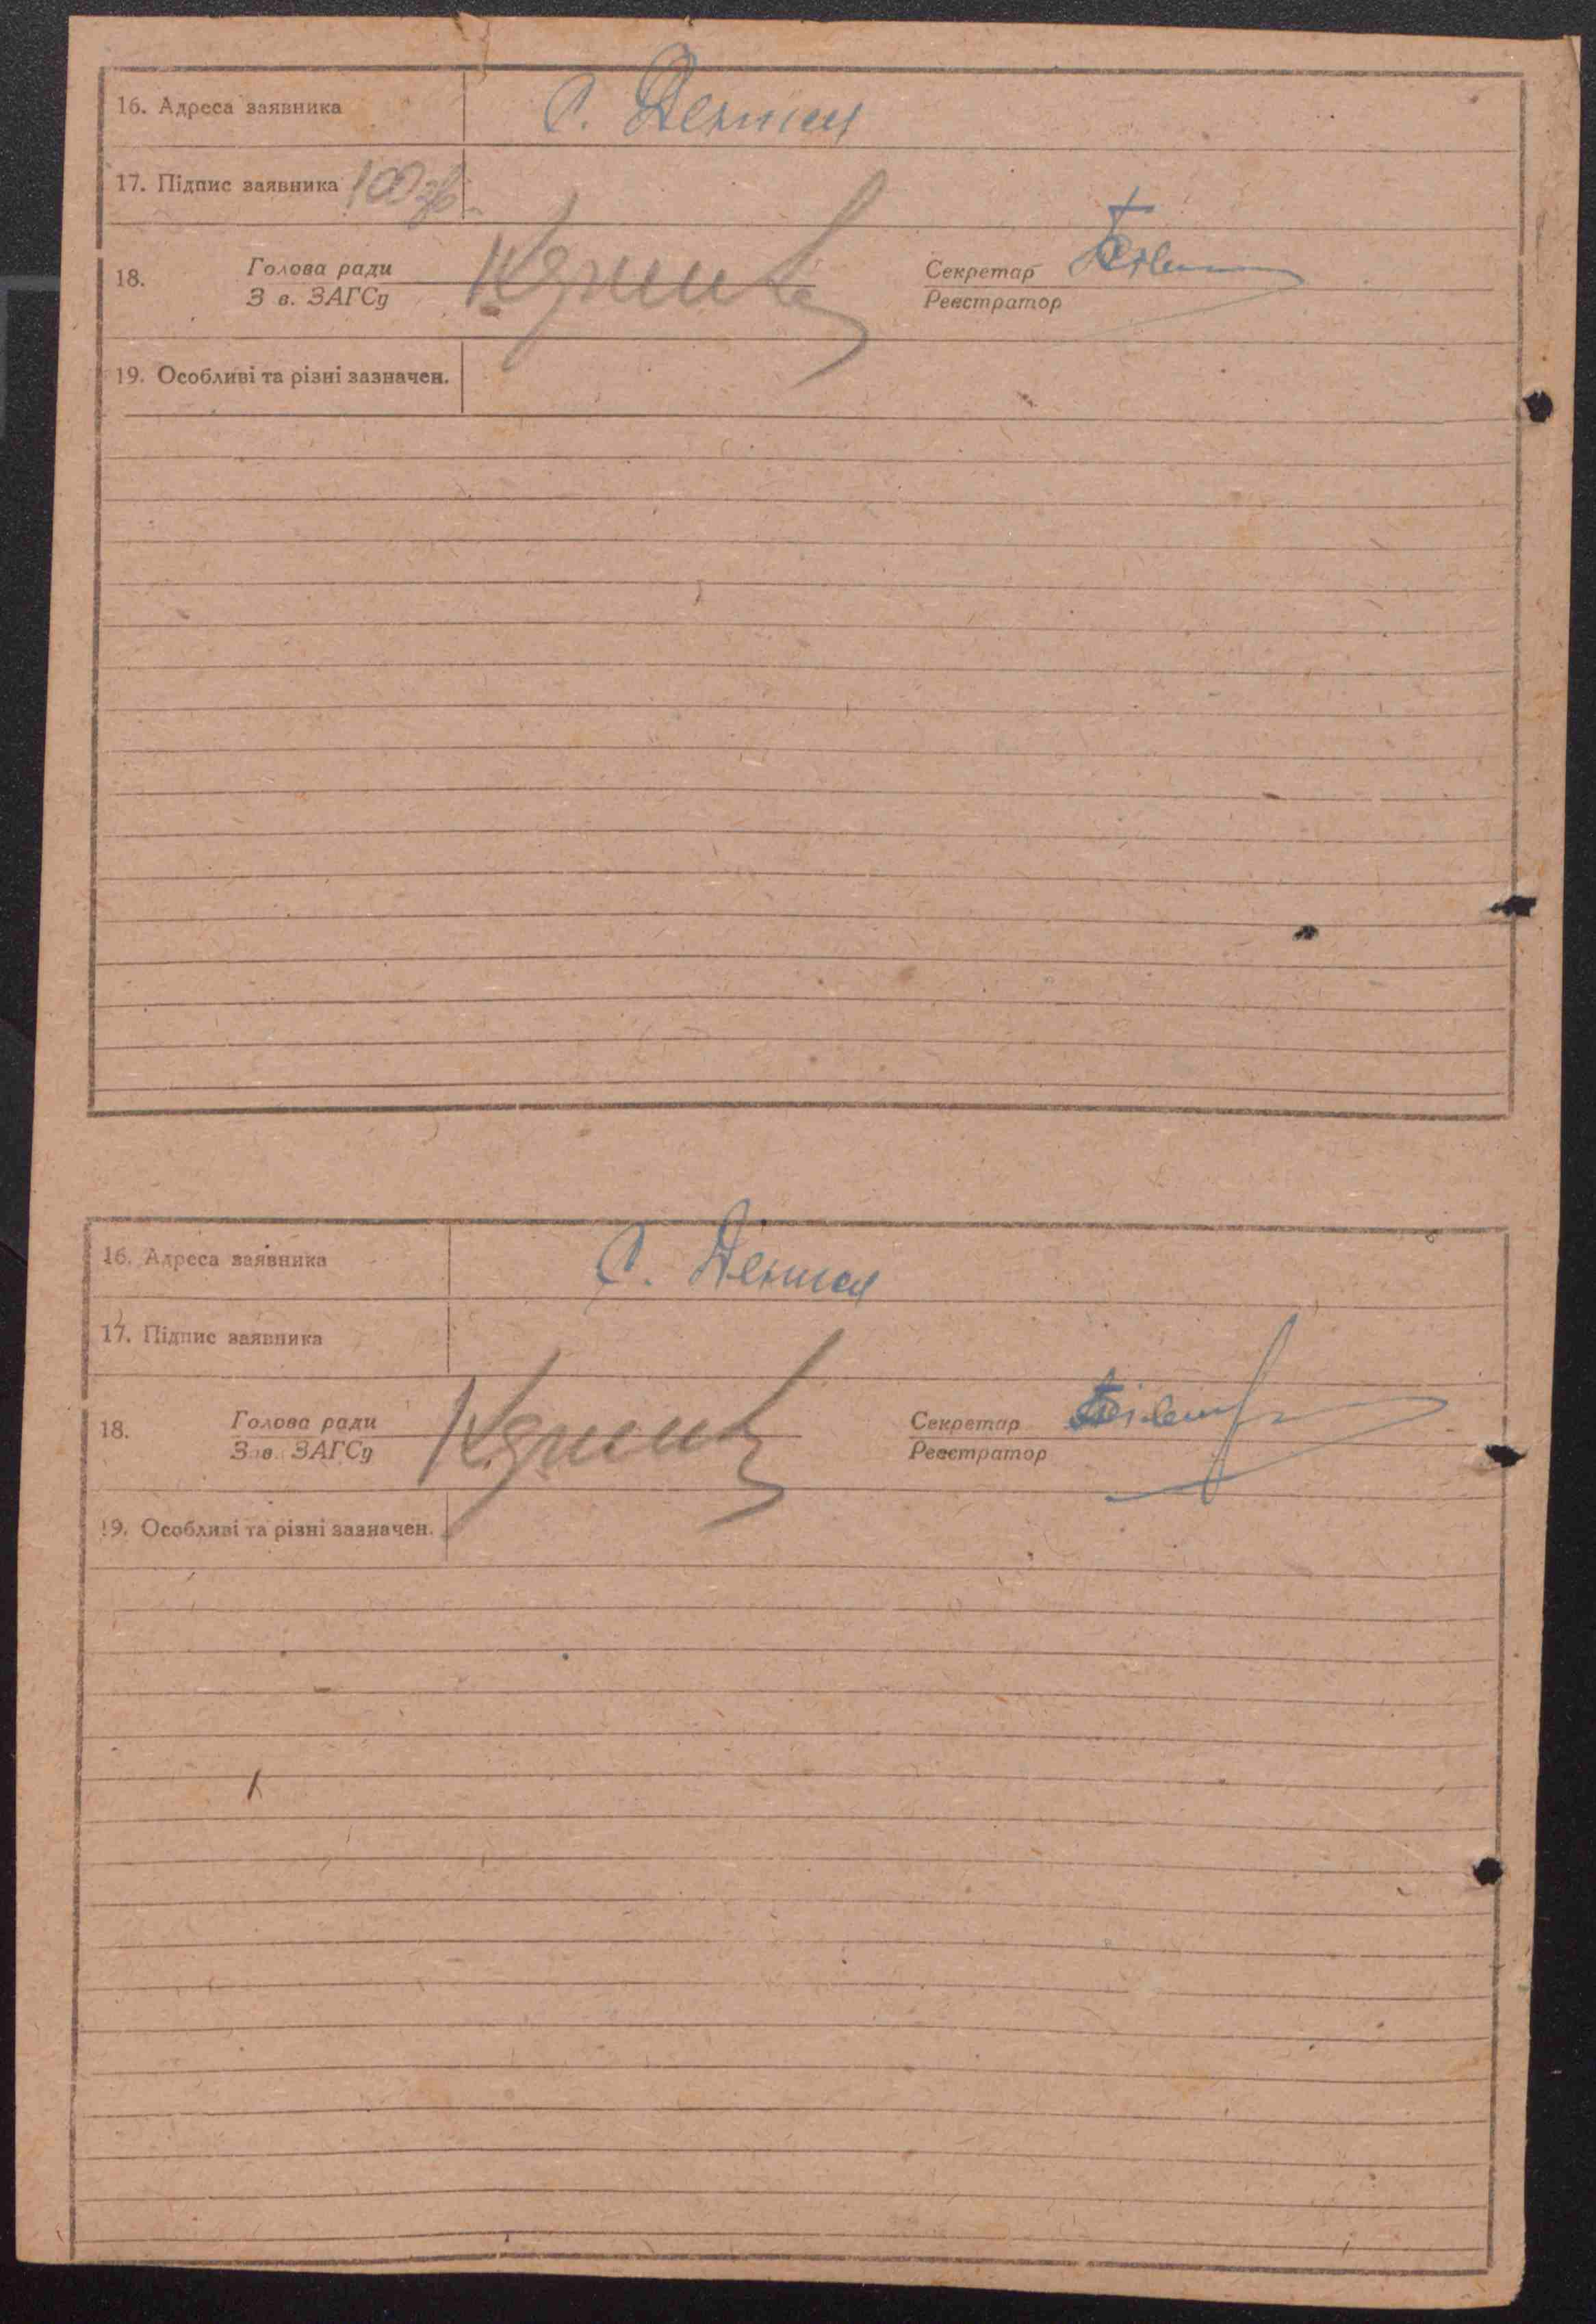 16. Адреса заявника С. Дениси
17. Підпис заявника 100 зв.
18. Голова ради Секретар
З в. ЗАГСу Реєстратор
19. Особливі та різні зазначен.
16. Адреса заявника С. Дениси
17. Підпис заявника
18. Голова ради Секретар
Зав. ЗАГСу Реєстратор
19. Особливі та різні зазначен.